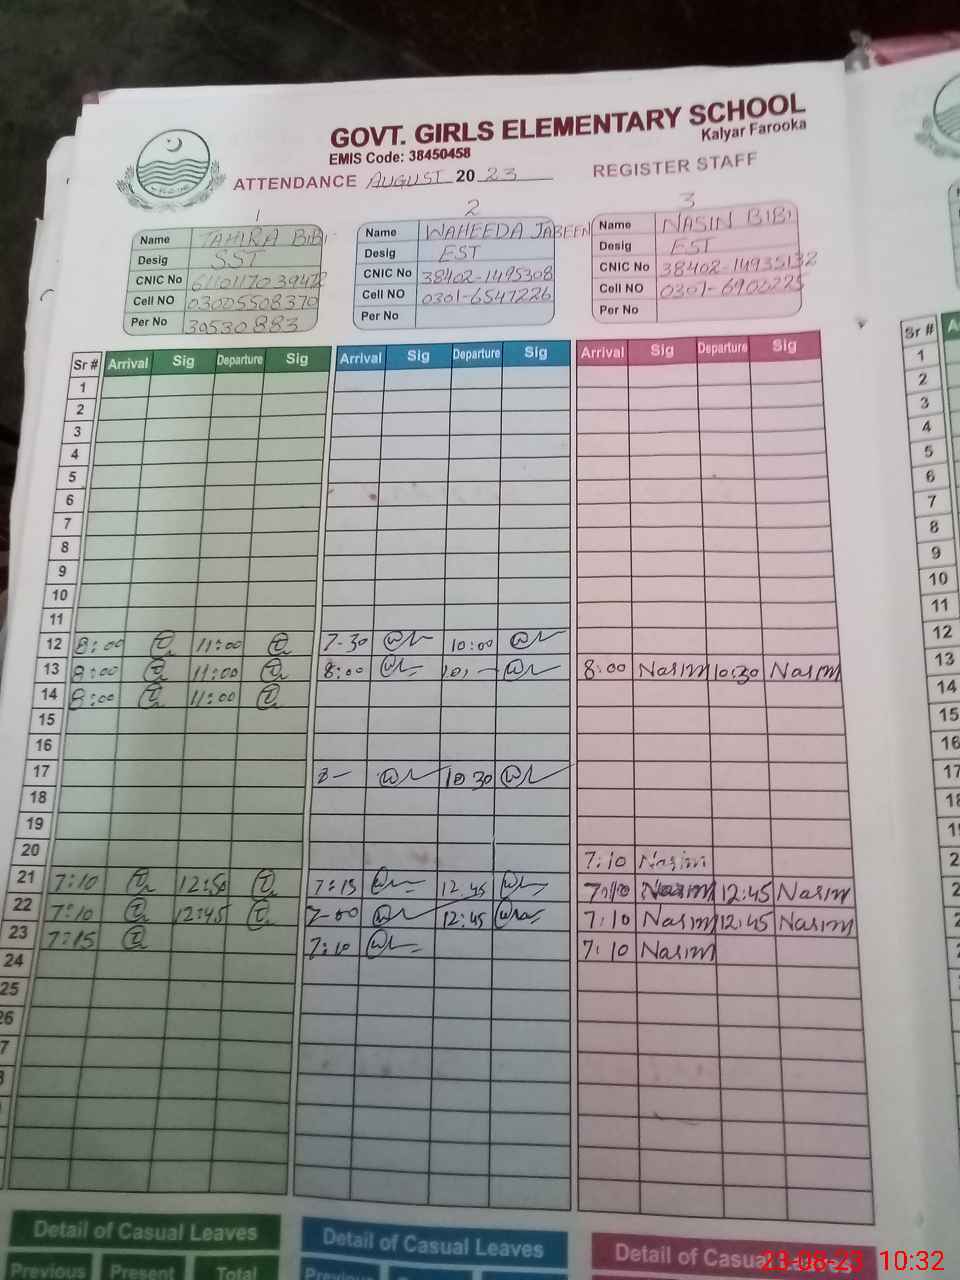 GOVT. GIRLS ELEMENTARY SCHOOL
Kalyar Farooka
EMIS Code: 38450458
ATTENDANCE AUGUST 20 23 REGISTER STAFF
1 2 3
Name TAHIRA BIBI Name WAHEEDA JABEEN Name NASIN BIBI
Desig SST Desig EST Desig EST
CNIC No CNIC No 38402-1495308 CNIC No 38402-14935132
Cell NO 03005508370 Cell NO 0301-6547226 Cell NO
Per No 30530883 Per No Per No
Sr # Arrival Sig Departure Sig Arrival Sig Departure Sig Arrival Sig Departure Sig Sr #
1 1
2 2
3 3
4 4
5 5
6 6
7 7
8 8
9 9
10 10
11 11
12 8:00 11:00 7-30 10:00 12
13 8:00 11:00 8:00 8:00 Nasim 10:30 Nasim 13
14 8:00 11:00 14
15 15
16 16
17 8- 10 30 17
18
19
20 7:10 Nasim
21 7:10 12:50 7:15 12.45 7:10 Nasim 12:45 Nasim
22 7:10 12:45 7-00 12:45 7:10 Nasim 12:45 Nasim
23 7:15 7:10 7:10 Nasim
24
25
Detail of Casual Leaves Detail of Casual Leaves Detail of Casual
Previous Present Total
23-08-23 10:32